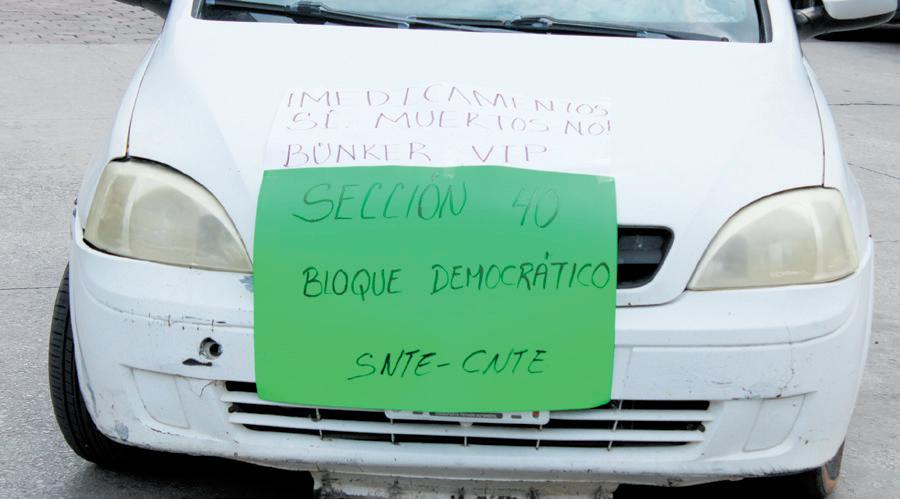 ¡MEDICAMENTOS
SÍ. MUERTOS NO!
BÚNKER VIP
SECCIÓN 40
BLOQUE DEMOCRÁTICO
SNTE-CNTE